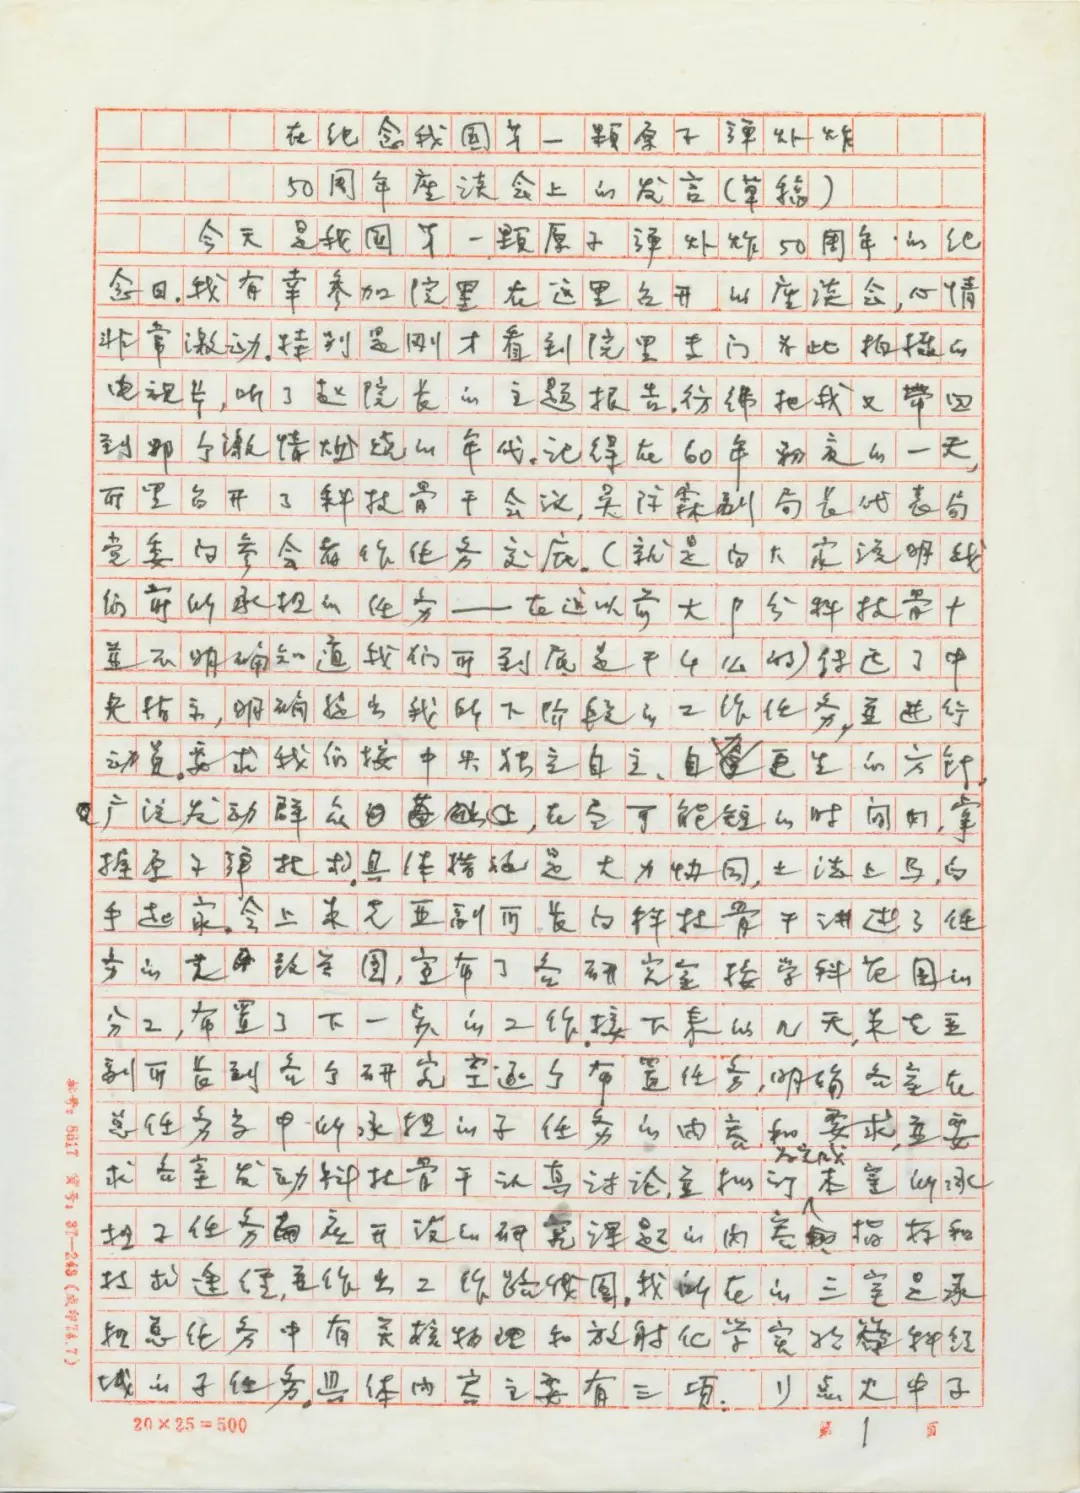 在纪念我国第一颗原子弹炸
50周年座谈会上的发言(草稿)
今天是我国第一颗原子弹炸50周年的纪
念日.我有幸参加院里在这里召开的座谈会,心情
非常激动.特别是刚才看到院里专门为此拍摄的
电视片,听了赵院长的主题报告.彷彿把我又带回
到那个激情燃烧的年代.记得在60年初夏的一天,
所里召开了科技骨干会议,吴际霖副局长代表局
党委向参会者作任务交底.(就是向大家说明我
们所承担的任务——在这以前大部分科技骨干
并不明确知道我们所到底是干什么的)传达了中
央指示,明确提出我所下阶段的工作任务,并进行
动员.要求我们按中央独立自主、自更生的方针,
广泛发动群众,在尽可能短的时间内,掌
握原子弹技术.具体措施是大力协同,土法上马,白
手起家.会上朱光亚副所长向科技骨干讲述了任
务的,宣布了各研究室按学科范围的
分工,布置了下一步的工作.接下来的几天,朱光亚
副所长到各个研究室逐个布置任务,明确各室在
总任务中所承担的子任务的内容和要求,并要
求各室发动科技骨干认真讨论,并拟订为完成本室所承
担子任务应开设的研究课题的内容指标和
技术途径,并作出工作路线图.我所在的三室是承
担总任务中有关核物理和放射化学实验等科
域的子任务.具体内容主要有三项.1)点火中子
20×25=500
第1页